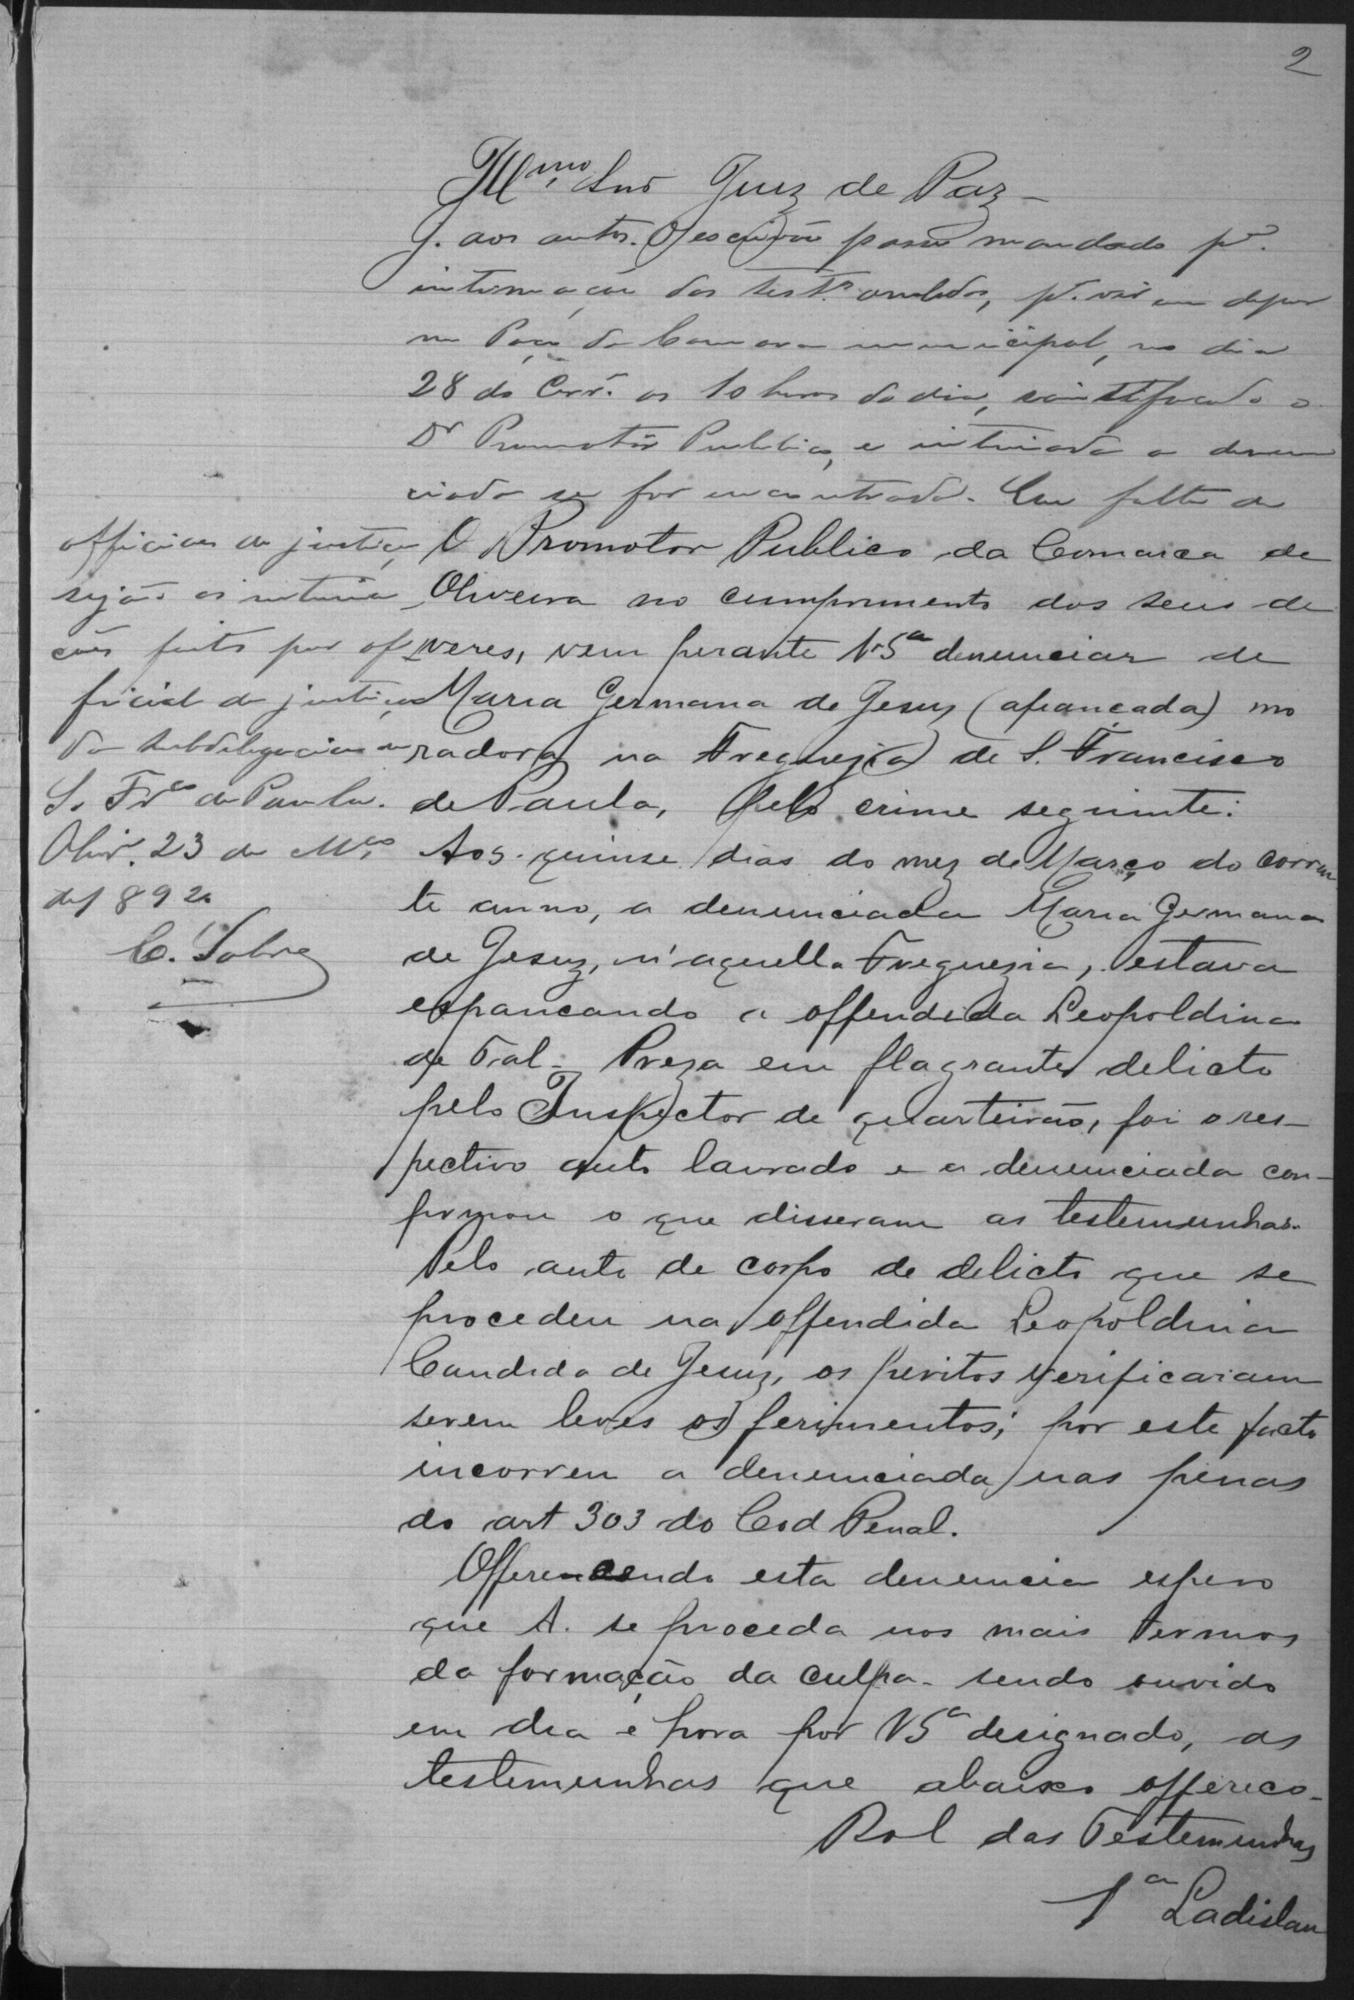 2
Illmo Snr Juiz de Paz _
J. aos autos. O escrivão passe mandado pa.
intimação das test.as arroladas, pa. virem depor
no Paço da Camara municipal, no dia
28 do Corr.e as 10 horas do dia, scientificado o
Dr Promotor Publico, e intimada a denun
ciada se for encontrada. Em falta de
officiaes de justiça,
sejão as intima
ções feitas por of
ficial de justiça
da subdelegacia de
S. Frco de Paula.
Oliv.a 23 de Mço
de 1892
C. Sobro
O Promotor Publico da Comarca de
Oliveira no cumprimento dos seus de
veres, vem perante VSa denunciar de
Maria Germana de Jesus (afiançada) mo
radora na Freguezia de S. Francisco
de Paula, pelo crime seguinte:
Aos quinse dias do mez de Março do corren
te anno, a denunciada Maria Germana
de Jesuz, n'aquella Freguezia, estava
espancando a offendida Leopoldina
de Tal _ Preza em flagrante delicto
pelo Inspector de quarteirão, foi o res_
pectivo auto lavrado e a denunciada con_
firmou o que disseram as testemunhas.
Pelo auto de corpo de delicto que se
procedeu na offendida Leopoldina
Candida de Jesuz, os peritos verificaram
serem leves os ferimentos; por este facto
incorreu a denunciada nas penas
do art 303 do Cod Penal.
Offerencendo esta denuncia espero
que A. se proceda nos mais termos
da formação da culpa _ sendo ouvido
em dia e hora por VSa designado, as
testemunhas que abaixo offereço _
Rol das Testemunhas
1a Ladislau